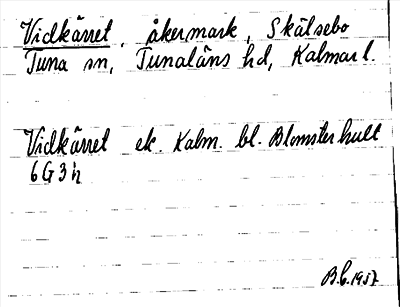 Vidkärret, åkermark, Skälsebo
Tuna sn, Tunaläns hd, Kalmar l.
Vidkärret ek. Kalm. bl. Blomsterhult
6G3h
B.b. 1957